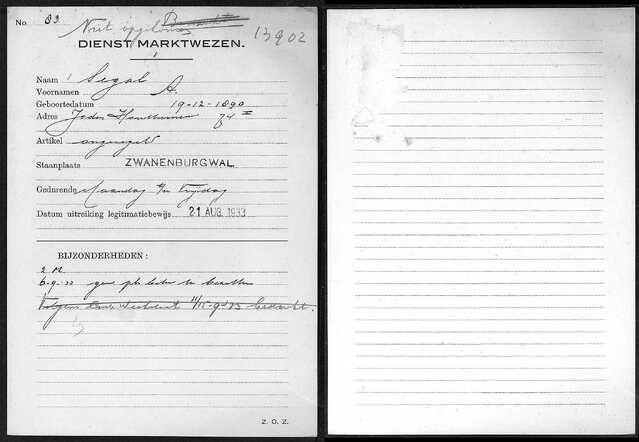 No. 83
Niet
13902
DIENST MARKTWEZEN.
Naam Segal
Voornamen A.
Geboortedatum 19-12-1890
Adres Joden 74 II
Artikel ongeregeld
Staanplaats ZWANENBURGWAL
Gedurende Maandag t/m Vrijdag
Datum uitreiking legitimatiebewijs 21 AUG. 1933
BIJZONDERHEDEN:
2 M
6-9-33 geen te
Volgens 11/15-9-33
Z. O. Z.